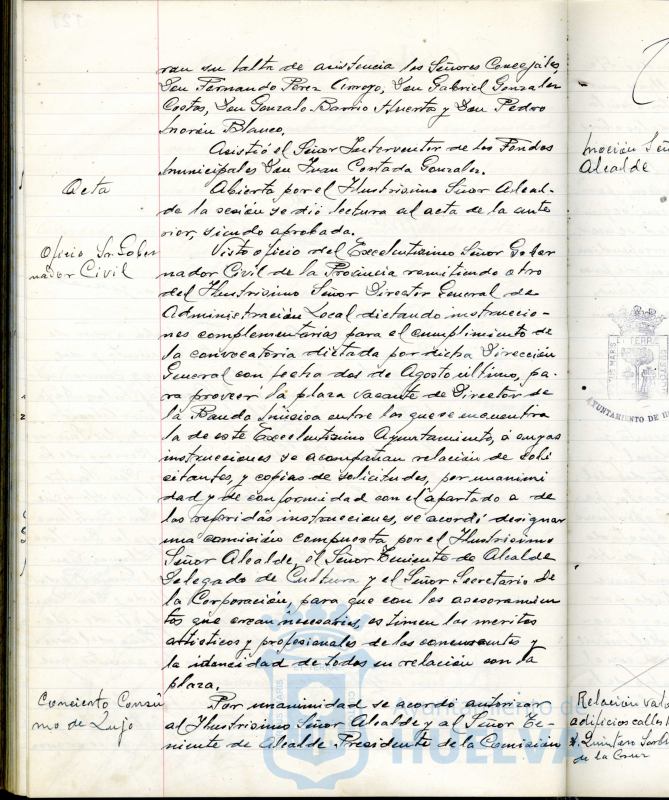 ran su falta de asistencia los Señores Concejales,
Don Fernando Pérez Arroyo, Don Gabriel Gonzalez
Costas, Don Gonzalo Barrio Huerta y Don Pedro
Morón Blanco.
Asistió el Señor Interventor de los Fondos
Municipales Don Juan Contada Gonzalez.
Acta
Abierta por el Ilustrisimo Señor Alcal-
de la sesión se dió lectura al acta de la ante
rior, siendo aprobada.
Oficio Sr. Gober
nador Civil
Visto oficio del Excelentisimo Señor Gober
nador Civil de la Provincia remitiendo otro
del Ilustrisimo Señor Director General de
Administración Local dictando instruccio-
nes complementarias para el cumplimiento de
la convocatoria dictada por dicha Dirección
General con fecha dos de Agosto último, pa-
ra proveer la plaza vacante de Director de
la Banda Música entre las que se encuentra
la de este Excelentisimo Ayuntamiento, á cuyas
instrucciones se acompañan relación de soli
citantes, y copias de solicitudes, por unanimi
dad y de conformidad con el apartado a de
las referidas instrucciones, se acordó designar
una comisión compuesta por el Ilustrisimo
Señor Alcalde, el Señor Teniente de Alcalde
Delegado de Cultura y el Señor Secretario de
la Corporación, para que con los asesoramien
tos que crean necesarios, estimen los meritos
artisticos y profesionales de los concursantes y
la idoneidad de todos en relación con la
plaza.
Concierto Consu
mo de Lujo
Por unanimidad se acordó autorizar
al Ilustrisimo Señor Alcalde y al Señor Te-
niente de Alcalde Presidente de la Comisión
Moción Señ
Alcalde
AYUNTAMIENTO DE H
Relación valo
edificios calles
Quintero
de la Cruz
Ayuntamiento de
HUELVA